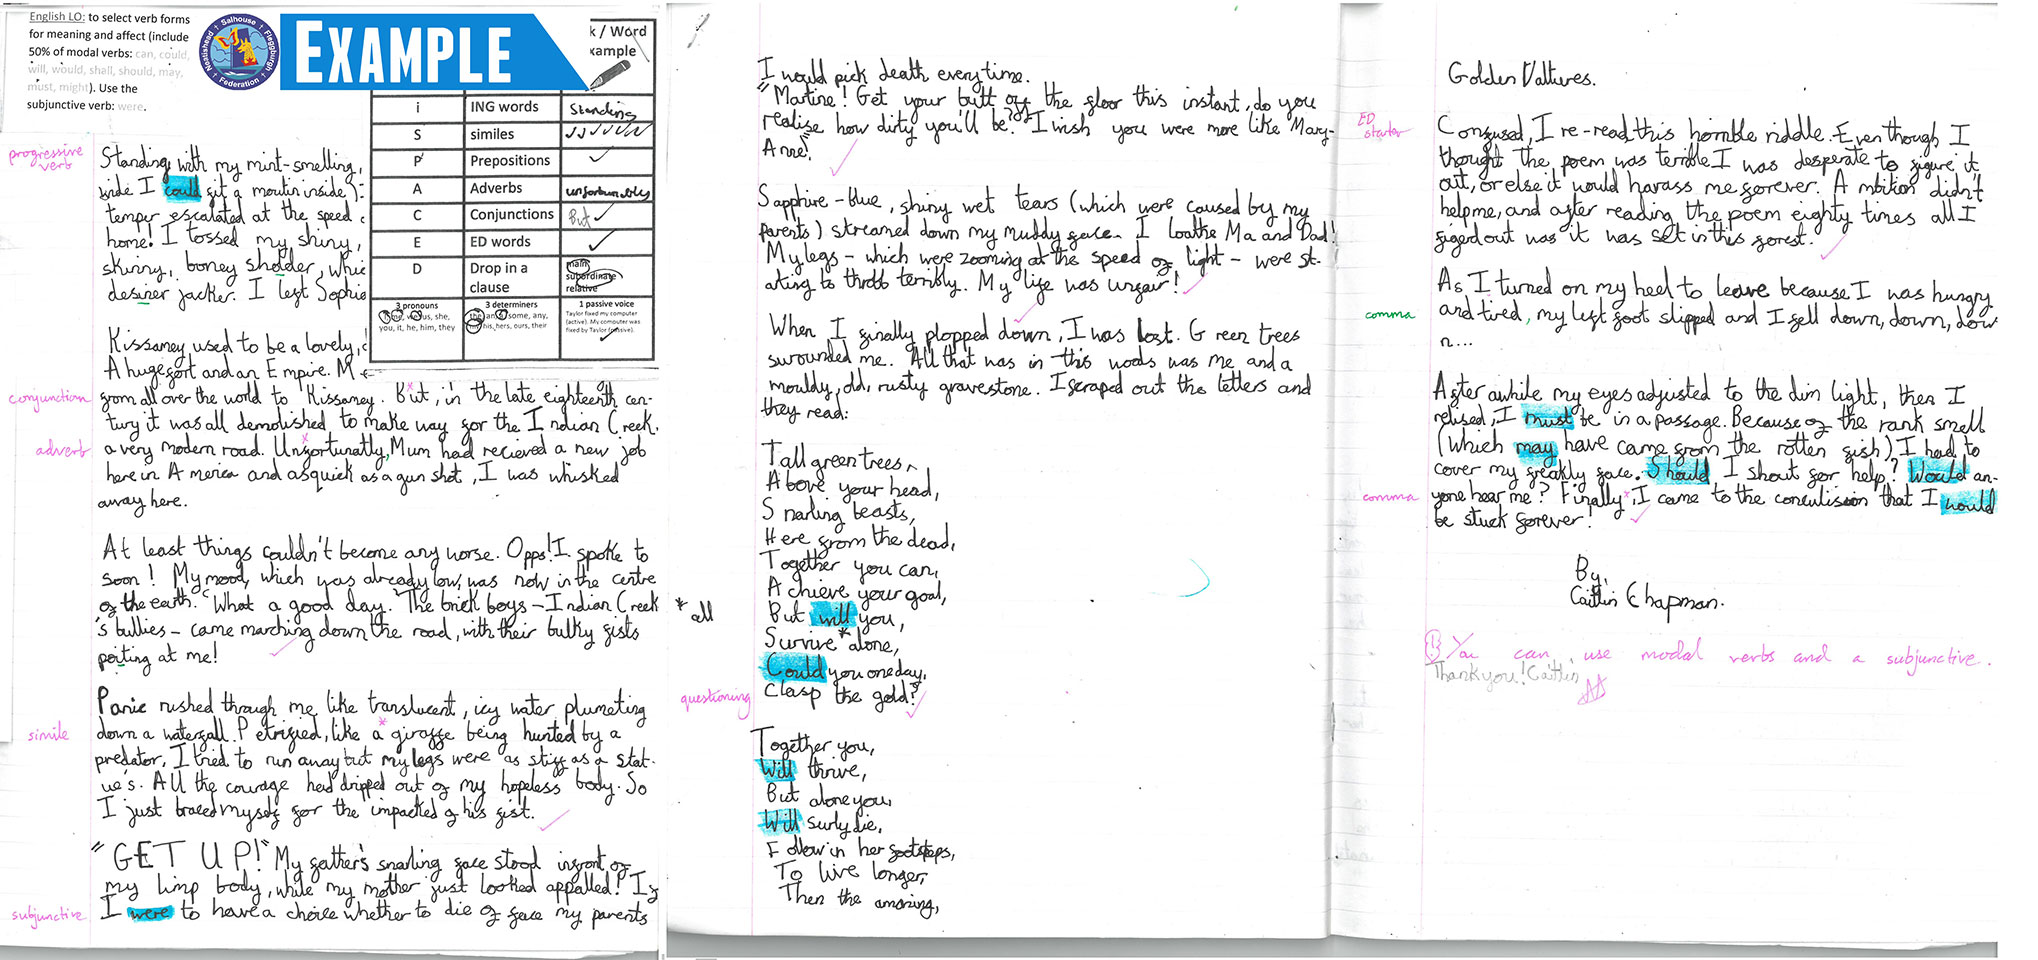 English LO: to select verb forms
for meaning and affect (include
50% of modal verbs: can, could,
will, would, shall, should, may,
must, might). Use the
subjunctive verb: were.
Salhouse
Neatishead
Fleggburgh
Federation
EXAMPLE
k / Word
xample
i ING words Standing
S similes
P Prepositions
A Adverbs unfortunatley
C Conjunctions But
E ED words
D Drop in a
clause
main
subordinate
relative
3 pronouns
I, me, we, us, she,
you, it, he, him, they
3 determiners
the, an, a, some, any,
my, his, hers, ours, their
1 passive voice
Taylor fixed my computer
(active). My computer was
fixed by Taylor (passive).
progressive
verb
Standing with my mint-smelling,
wide I could fit a moutin inside)-
temper escalated at the speed
home! I tossed my shiny,
skinny, boney sholder, whic
desiner jacker. I left Sophie
Kissaney used to be a lovely,
A huge fort and an Empire. M
conjunction
from all over the world to Kissaney. But, in the late eighteenth cen-
tury it was all demolished, to make way for the Indian Creek.
adverb
a very modern road. Unfortunatly, Mum had recieved a new job
here in America and as quick as a gun shot, I was whisked
away here.
At least things couldn't become any worse. Opps! I spoke to
soon! My mood, which was already low, was now in the centre
of the earth. "What a good day." The brick boys - Indian Creek
's bullies - came marching down the road, with their bulky fists
poiting at me!
Panic rushed through me like translucent, icy water plumeting
simile
down a waterfall. Petrified, like a giraffe being hunted by a
predator, I tried to run away but my legs were as stiff as a stat-
ue's. All the courage had dripped out of my hopeless body. So
I just braced myself for the impacted of his fist.
"GET UP!" My father's snarling face stood infront of
my limp body, while my mother just looked appalled! If
subjunctive
I were to have a choice whether to die of face my parents
I would pick death everytime.
"Martine! Get your butt off the floor this instant, do you
realise how dirty you'll be? I wish you were more like Mary-
Anne."
Sapphire-blue, shiny wet tears (which were caused by my
parents) streamed down my muddy face. I loathe Ma and Dad!
My legs - which were zooming at the speed of light - were st-
ating to throb terribly. My life was unfair!
When I finally plopped down, I was lost. Green trees
surrounded me. All that was in this woods was me and a
mouldy, old, rusty gravestone. I scraped out the letters and
they read:
Tall green trees,
Above your head,
Snarling beasts,
Here from the dead,
Together you can,
Achieve your goal,
But will you,
* all
Survive * alone,
Could you one day,
questioning
Clasp the gold?
Together you,
Will thrive,
But alone you,
Will surly die,
Follow in her footsteps,
To live longer,
Then the amazing,
Golden Valtures.
ED
starter
Confused, I re-read, this horrible riddle. Even though I
thought the poem was terrible I was desperate to figure it
out, or else it would harass me forever. Ambition didn't
help me, and after reading the poem eighty times all I
figerd out was it was set in this forest.
As I turned on my heel to leave because I was hungry
comma
and tired, my left foot slipped and I fell down, down, dow
n...
After awhile my eyes adjusted to the dim light, then I
relised, I must be in a passage. Because of the rank smell
(which may have came from the rotten fish) I had to
cover my freakly face. Should I shout for help? Would an-
comma
yone hear me? Finally, I came to the conculision that I would
be stuck forever!
By,
Caitlin Chapman.
You can use modal verbs and a subjunctive.
Thankyou! Caitlin